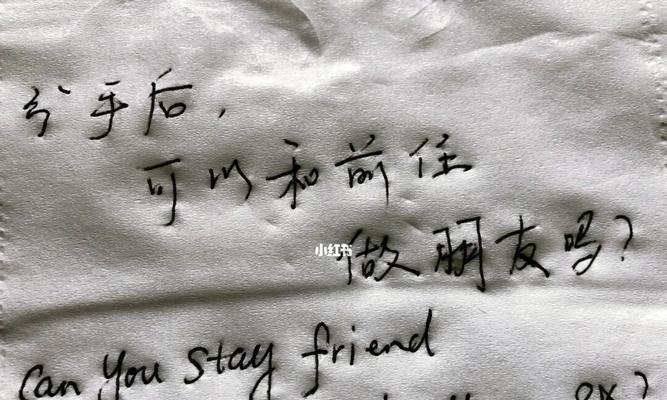 分手后,
可以和前住
小红书
做朋友吗?
Can You Stay friend
ex?